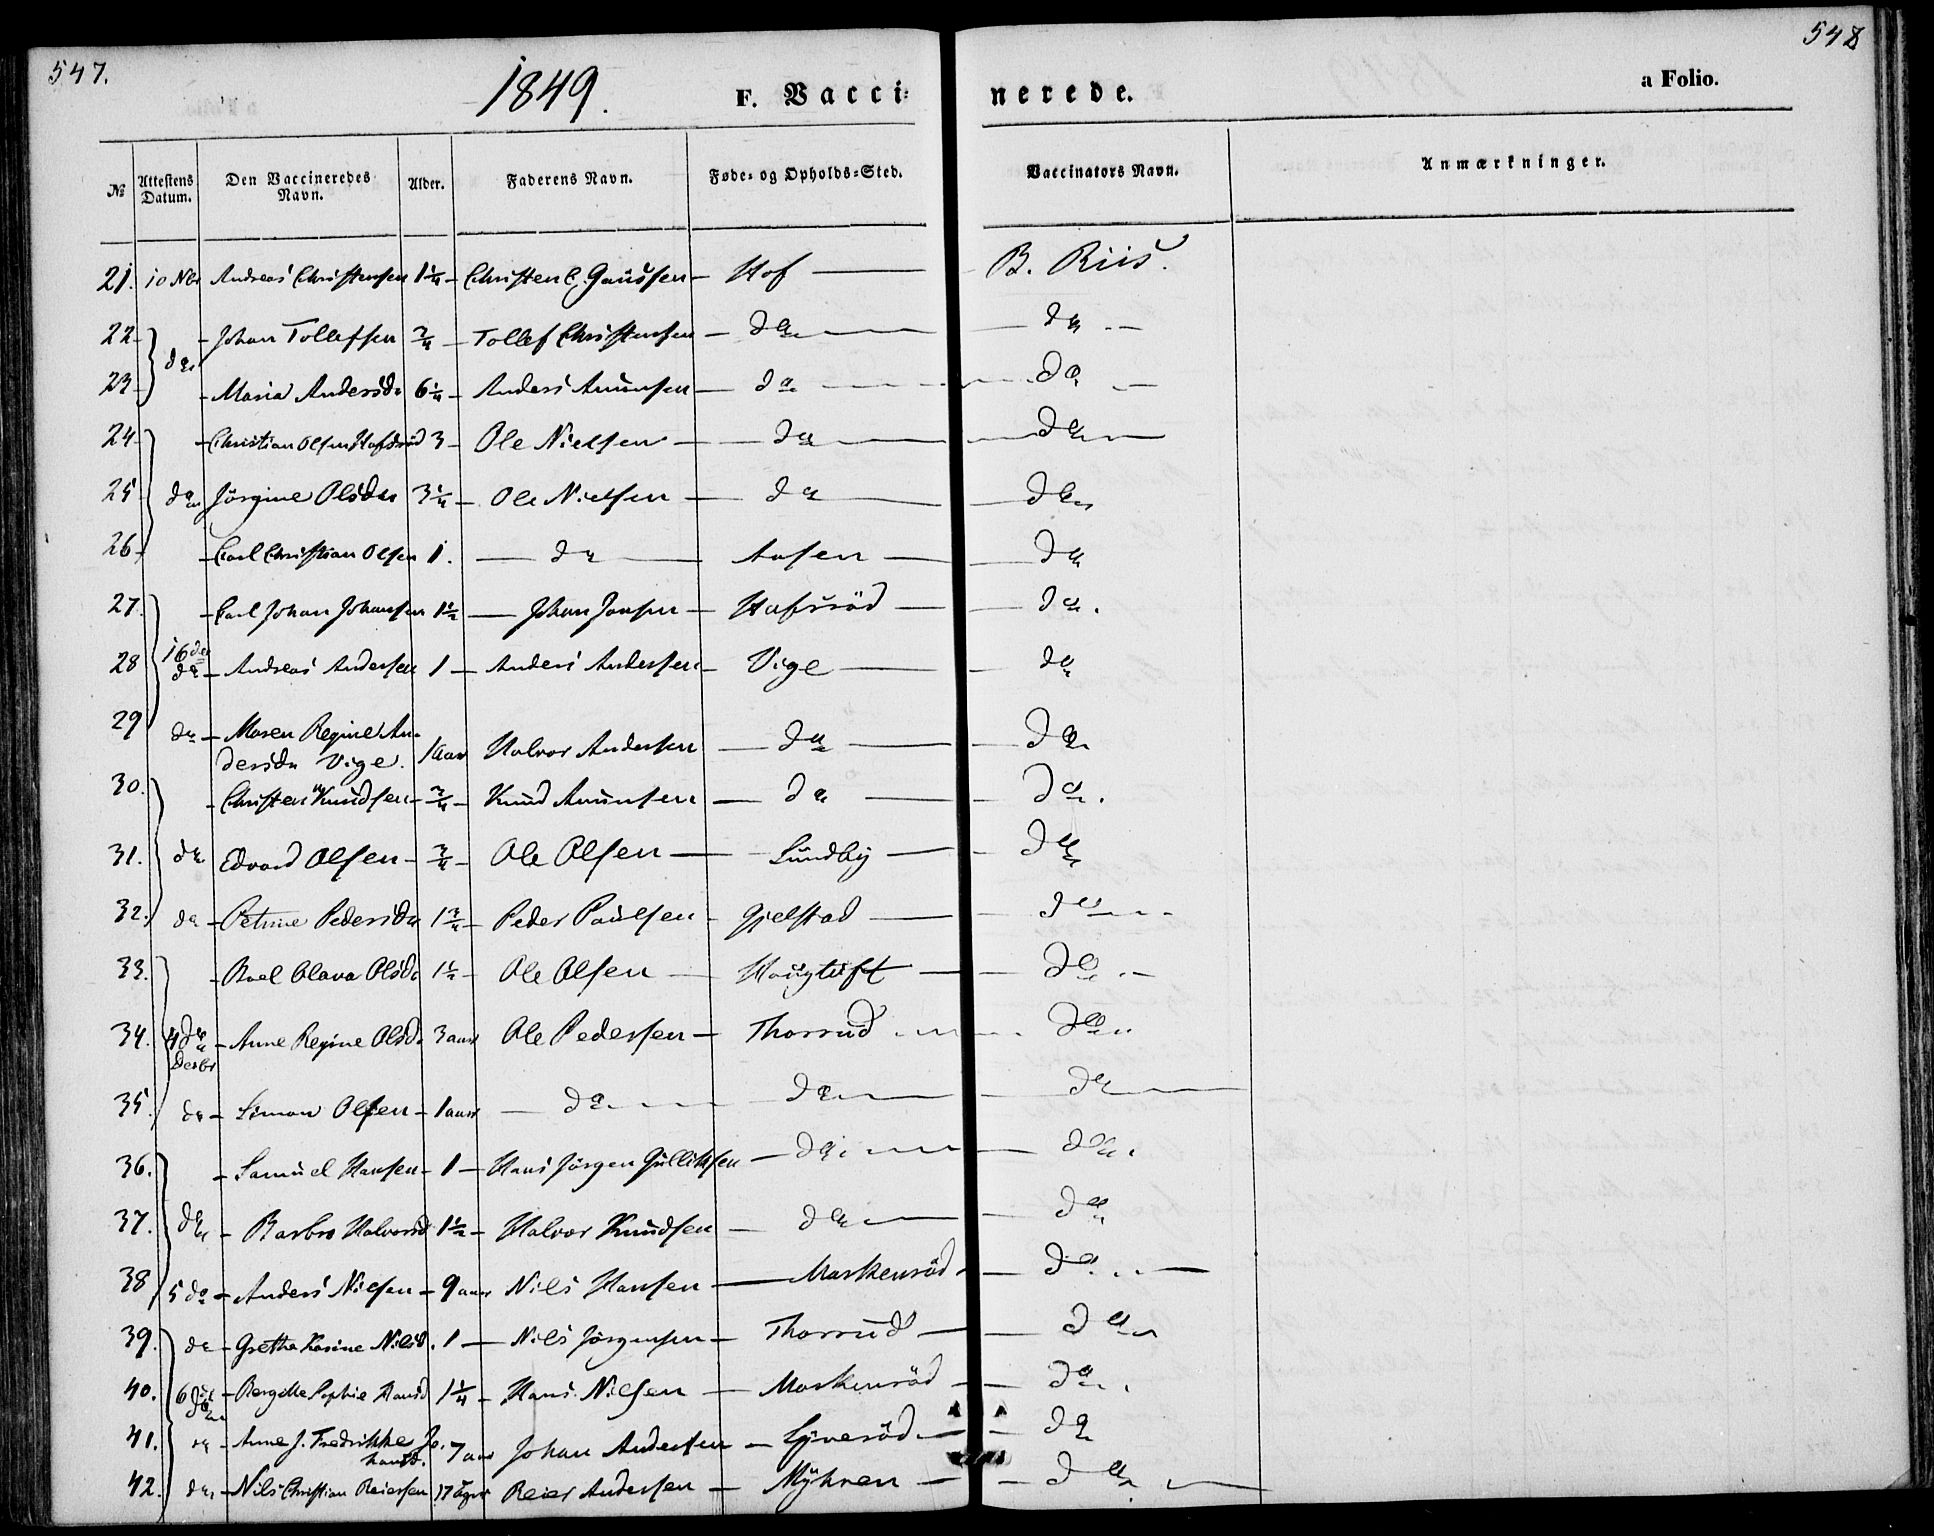 547.
548
1849.
F. Vacci-
nerede.
a Folio.
№ Attestens Datum. Den Vaccineredes Navn. Alder. Faderens Navn. Føde- og Opholds-Sted. Vaccinators Navn. Anmærkninger.
21. 10 Nbr Andreas Christensen 1¼ – Christen C. – Hof — B. Riis.
22 – Johan Tollefsen ¾ – Tollef Christensen – do — do –
do
23 – Maria Andersdr 6¼ – Anders Amunsen – do — do –
24 – Christian Olsen Hofsrød 3 – Ole Nielsen – do — do –
25 do Jörgine Olsdr 3¼ – Ole Nielsen – do — do
26 – Carl Christian Olsen 1. – do – Aasen — do
27. – Carl Johan Johansen 1½ – Johan Jonsen – Hafsröd — do.
28 16de do – Andreas Andersen 1 – Anders Andersen – Vige — do
29 do – Maren Regine An-
dersdr Vige. 1 aar Halvor Andersen – do — do
30. – Christen Knudsen – ¾ – Knud Amunsen – do — do.
31. do Edvard Olsen – ¾ – Ole Olsen – Lundby — do
32. do – Petrine Pedersdr 1¾ – Peder Paulsen – Gjelstad — do –
33. – Roel Olava Olsdr 1½ – Ole Olsen – Haugtuft — do –
34. 4de Decbr – Anne Regine Olsdr 3 aar Ole Pedersen – Thorrud — do
35. do – Simon Olsen – 1 aar – do — do — do –
36. – Samuel Hansen – 1 – Hans Jörgen Gulliksen – do — do.
37. do – Barbro Halvorsd 1½ – Halvor Knudsen – do — do
38 5 do – Anders Nielsen – 9 aar Nils Hansen – Maskeröd — do –
39. do – Grethe Karine Nilsd. 1 – Nils Jörgensen – Thorrud — do
40. 6 do – Bergitte Sophie Hansd 1¼ – Hans Nilsen – Maskeröd — do.
41. do – Anne J. Fredrikke Jo-
hansd. 7 aar Johan Andersen – — do
42. do – Nils Christian Reiersen 17 Reier Andersen – Myhren — do –